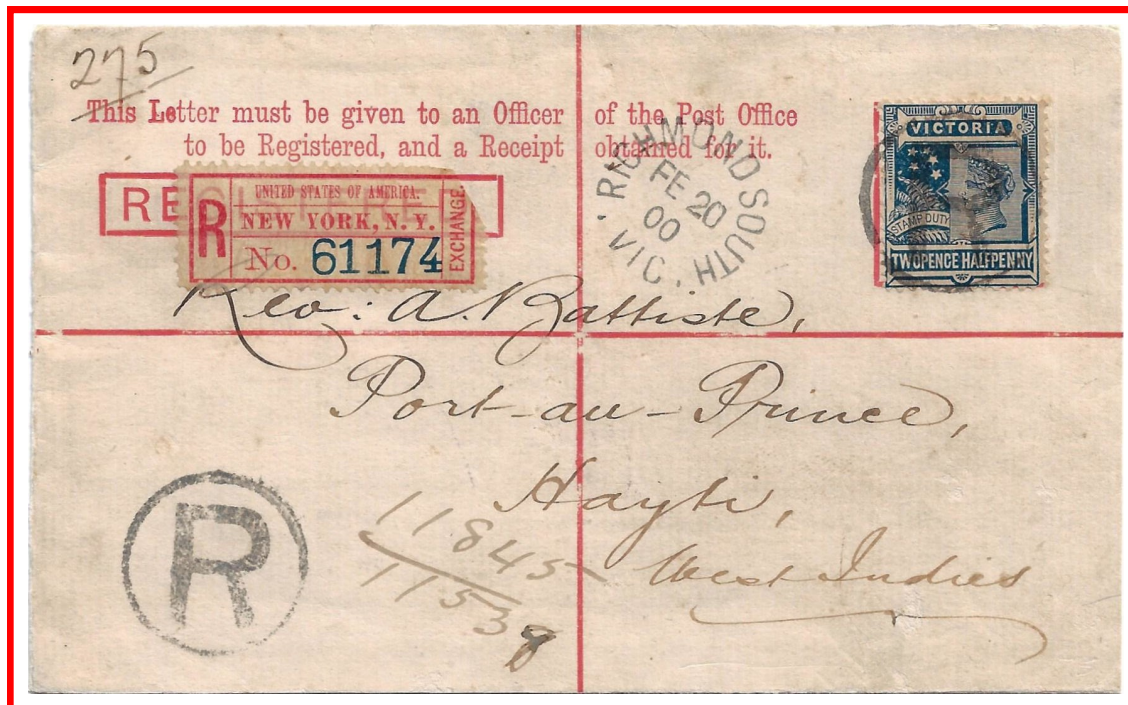 275
This Letter must be given to an Officer of the Post Office
to be Registered, and a Receipt obtained for it.
RE
UNITED STATES OF AMERICA.
R NEW YORK, N. Y.
No. 61174
EXCHANGE.
RICHMOND SOUTH
FE 20
00
VIC.
VICTORIA
STAMP DUTY
TWOPENCE HALFPENNY
Rev: A. Battiste,
Port-au-Prince,
Hayti,
West Indies
R
11845
1153